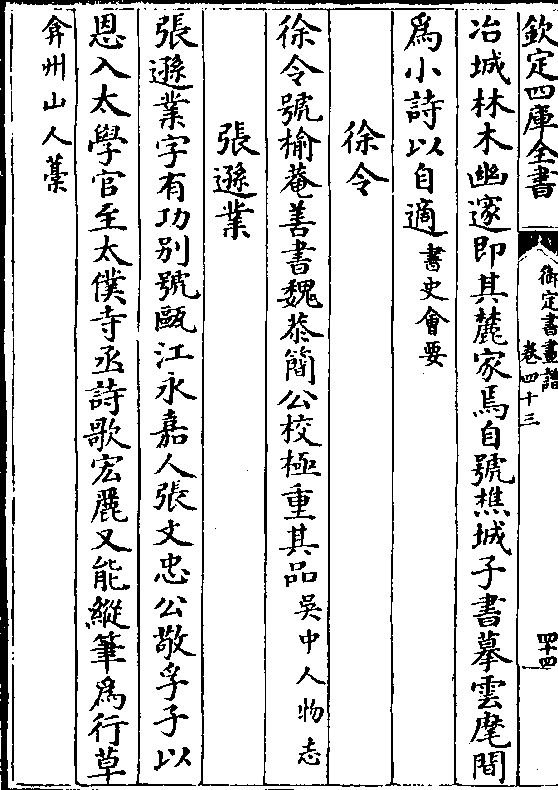 欽定四庫全書
御定書畫譜
卷四十三
四十四
冶城林木幽邃即其麓家焉自號樵城子書摹雲麾間
爲小詩以自適書史會要
徐令
徐令號榆菴善書魏恭簡公校極重其品吳中人物志
張遜業
張遜業字有功别號甌江永嘉人張文忠公敬孚子以
恩入太學官至太僕寺丞詩歌宏麗又能縱筆爲行草
弇州山人藁